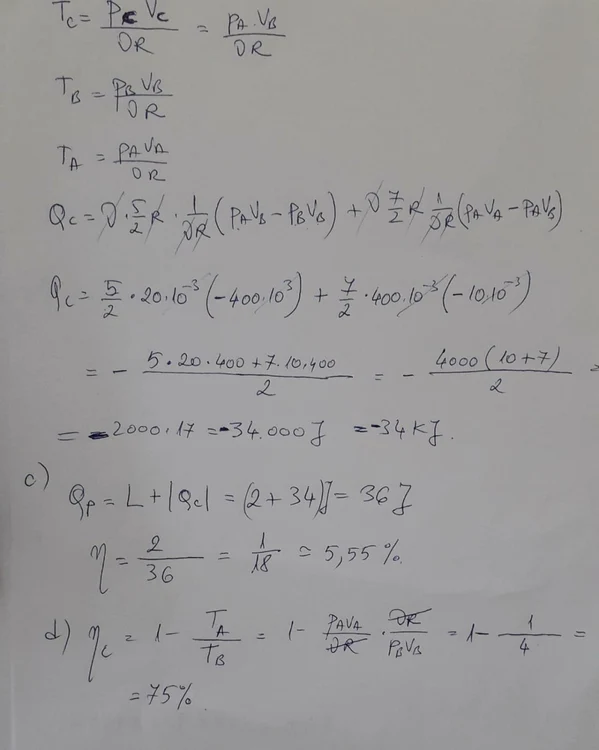 T_C = P_C V_C / νR = P_A · V_B / νR
T_B = P_B V_B / νR
T_A = P_A V_A / νR
Q_C = ν · 5/2 R · 1/νR (P_A V_B − P_B V_B) + ν 7/2 R 1/νR (P_A V_A − P_A V_B)
Q_C = 5/2 · 20·10^-3 (−400·10^3) + 7/2 · 400·10^-3 (−10·10^-3)
= − 5·20·400 + 7·10·400 / 2 = − 4000 (10+7) / 2 =
= −2000·17 = −34.000 J = −34 KJ.
c)
Q_P = L + |Q_C| = (2+34)J = 36 J
η = 2/36 = 1/18 = 5,55 %.
d) η_C = 1 − T_A/T_B = 1 − P_A V_A / νR · νR / P_B V_B = 1 − 1/4 =
= 75%